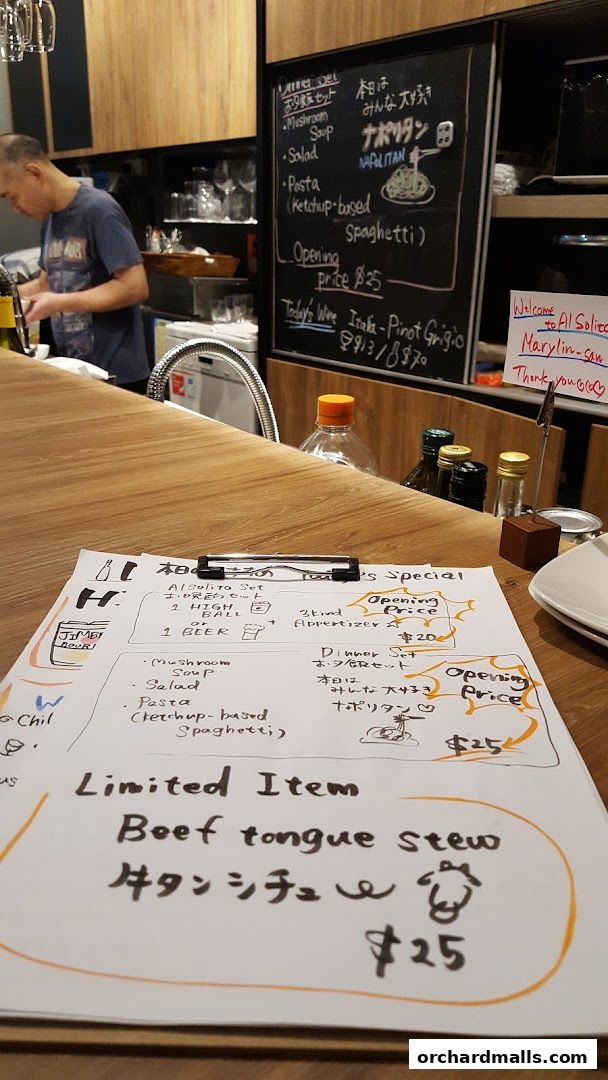 Dinner Set
お夕飯セット
・Mushroom
Soup
・Salad
・Pasta
(ketchup-based
spaghetti)
本日は
みんな大好き
ナポリタン
NAPOLITAN
Opening
price $25
Today's Wine Italia-Pinot Grigio
$13/ $70
Welcome
to Al Solito
Marylin-san
Thank you
本日
Special
Al Solito Set
1 HIGH
BALL
or
1 BEER
+
3kind
Appertizer
Opening
Price
$20
Dinner Set
お夕飯セット
・Mushroom
Soup
・Salad
・Pasta
(ketchup-based
spaghetti)
本日は
みんな大好き
ナポリタン♡
Opening
Price
$25
H
JIMBI
W
Chil
Limited Item
Beef tongue stew
牛タンシチュー
$25
orchardmalls.com